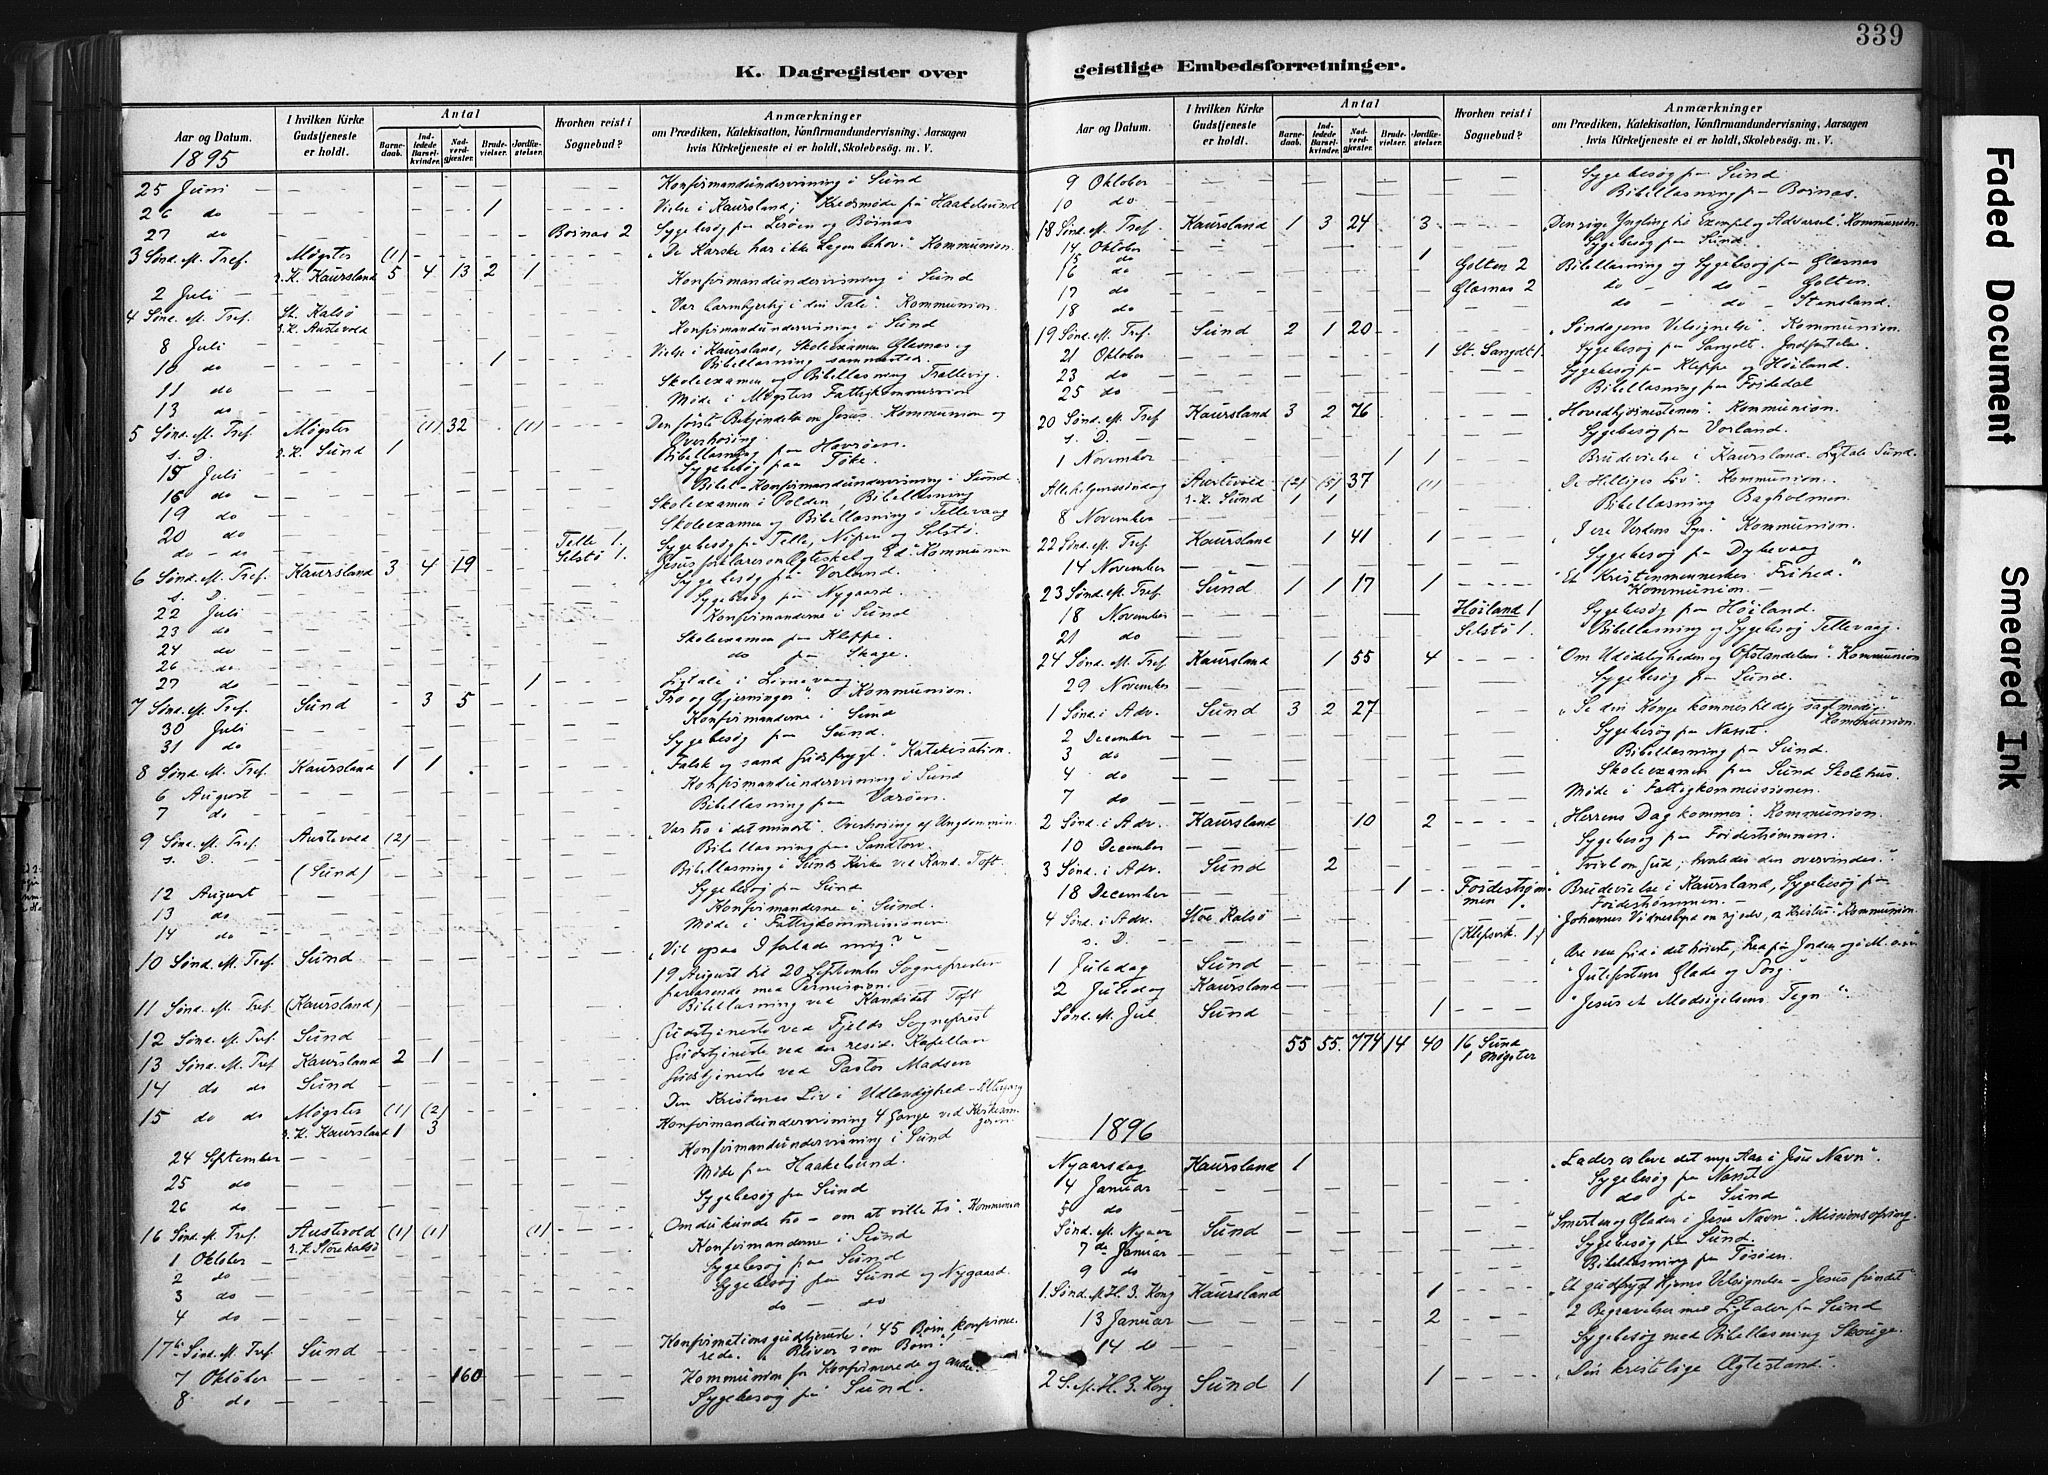 339
K. Dagregister over geistlige Embedsforretninger.
Aar og Datum.
I hvilken Kirke Gudstjeneste er holdt.
Antal
Barnedaab.
Indledede Barselkvinder.
Nadverdgjester.
Brudevielser.
Jordfæstelser.
Hvorhen reist i Sognebud?
Anmærkninger
om Prædiken, Katekisation, Konfirmandundervisning, Aarsagen
hvis Kirketjeneste ei er holdt, Skolebesög. m. V.
1895
25 Juni — Konfirmandundervisning i Sund
26 do 1 Vielse i Kaursland; Kredsmøde på Haakelsund
27 do Boinas 2 Sygebesøg på Lerøen og Boinas
3 Sønd. e. Tref. Møgster (1) "De Karske har ikke Lægen behov." Kommunion.
s. K. Kaursland 5 4 13 2 1
2 Juli Konfirmandundervisning i Sund
4 Sønd. e. Tref. St. Kalsø "Vær barmhjertig i din Tale". Kommunion.
s. K. Austevold
8 Juli Konfirmandundervisning i Sund
10 do 1 Vielse i Kaursland, Skoleexamen Glesnas og
Bibellæsning sammesteds.
11 do Skoleexamen og Bibellæsning Trællevig.
13 do Møde i Møgsters Fattigkommission
5 Sønd. e. Tref. Møgster (1) 32 (1) Den første Bekjendelse om Jesus. Kommunion og
Overhøring.
s. D. s. K. Sund 1 Bibellæsning paa Hovrøen.
15 Juli Sygebesøg paa Töke.
16 do Bibel- Konfirmandundervisning i Sund
19 do Skoleexamen i Polden, Bibellæsning
20 do Skoleexamen og Bibellæsning i Tellevaag
do - do Telle 1. Selstø 1. Sygebesøg på Telle, Nipen og Selstø.
6 Sønd. e. Tref. Kaursland 3 4 19 Jesus forklarer om Ægteskab og Ed. Kommunion
s. D. Sygebesøg på Vorland.
22 Juli Sygebesøg på Nygaard.
23 do Konfirmanderne i Sund
24 do Skoleexamen på Kleppe.
26 do do på Skage.
27 do 1 Ligtale i Limevaag
7 Sønd. e. Tref. Sund 3 5 "Tro og Gjerninger". Kommunion.
30 Juli Konfirmanderne i Sund
31 do Sygebesøg på Sund.
8 Sønd. e. Tref. Kaursland 1 1 "Falsk og sand Gudsfrygt." Katekisation.
6 August Konfirmandundervisning i Sund
7 do Bibellæsning paa Varøen.
9 Sønd. e. Tref. Austevold (2) "Vær tro i det mindste". Overhøring af Ungdommen
s. D. Bibellæsning på Sandtorv
(Sund) Bibellæsning i Sunds Kirke ved Kand. Toft.
12 August Sygebesøg på Sund
13 do Konfirmanderne i Sund.
14 do Møde i Fattigkommissionen
10 Sønd. e. Tref. Sund "Vil ogsaa I forlade mig?"
19 August til 20 September Sognepresten
fraværende med Permission.
11 Sønd. e. Tref. (Kaursland) Bibellæsning ved Kandidat Toft
12 Sønd. e. Tref. Sund Gudstjeneste ved Fjelds Sogneprest
13 Sønd. e. Tref. Kaursland 2 1 Gudstjeneste ved den resid. Kapellan
14 do do Sund Gudstjeneste ved Pastor Madsen
15 do do Møgster (1) (2) Den Kristenes Liv i Udlændighed - Altergang
s. K. Kaursland 1 3 Konfirmandundervisning 4 Gange ved Kirkesangeren.
24 September Konfirmandundervisning i Sund
25 do Møde på Haakelsund.
26 do Sygebesøg på Sund
16 Sønd. e. Tref. Austevold (1) (1) (1) "Om du kunde tro - om at ville tro". Kommunion
s. K. Störekalsø
1 Oktober Konfirmanderne i Sund
2 do Sygebesøg paa Sund
3 do Sygebesøg på Sund og Nygaard.
4 do do — do
17de Sønd. e. Tref. Sund Konfirmationsgudstjeneste! 45 Børn konfirmerede. "Bliver som Børn!"
7 Oktober 160 Kommunion for Konfirmerede og andre.
8 do Sygebesøg på Sund.
Aar og Datum.
I hvilken Kirke Gudstjeneste er holdt.
Antal
Barnedaab.
Indledede Barselkvinder.
Nadverdgjester.
Brudevielser.
Jordfæstelser.
Hvorhen reist i Sognebud?
Anmærkninger
om Prædiken, Katekisation, Konfirmandundervisning, Aarsagen
hvis Kirketjeneste ei er holdt, Skolebesög. m. V.
9 Oktober Sygebesøg på Sund
10 do Bibellæsning på Boinas.
18 Sønd. e. Tref. Kaursland 1 3 24 3 Den rige Yngling til Exempel og Advarsel". Kommunion.
14 Oktober Sygebesøg på Sund.
15 do 1
16 do Golten 2 Bibellæsning og Sygebesøg på Glæsnas
17 do Glæsnas 2 do — do - Golten.
18 do do " do - Stensland.
19 Sønd. e. Tref. Sund 2 1 20 "Søndagens Velsignelse". Kommunion.
21 Oktober 1 St. Sangolt 1. Sygebesøg på Sangolt. Jordfæstelse
23 do Sygebesøg på Kleppe og Høiland.
25 do Bibellæsning på Foidedal
20 Sønd. e. Tref. Kaursland 3 2 76 "Hovedhjørnestenen". Kommunion.
s. D. Sygebesøg på Vorland.
1 November 1 1 Brudevielse i Kaursland. Ligtale Sund.
Allehelgenssöndag Austevold (2) (5) 37 (1) "De Helliges Liv". Kommunion.
s. K. Sund 1 1
8 November Bibellæsning Bagholmen
22 Sønd. e. Tref. Kaursland 1 41 1 "I ere Verdens Lys." Kommunion.
14 November Sygebesøg på Dybevaag
23 Sønd. e. Tref. Sund 1 1 17 1 "Et Kristenmenneskes Frihed."
Kommunion.
18 November Høiland 1 Sygebesøg på Høiland.
21 do Selstø 1. Bibellæsning og Sygebesøg Tellevaag.
24 Sønd. e. Tref. Kaursland 1 55 4 "Om Udødeligheden og Opstandelsen". Kommunion
29 November Sygebesøg på Sund.
1 Sønd. i Adv. Sund 3 2 27 "Se din Konge kommer til dig sagtmodig."
Kommunion.
2 December Sygebesøg på Næsset.
3 do Bibellæsning på Sund.
4 do Skoleexamen paa Sund Skolehus.
7 do Møde i Fattigkommissionen.
2 Sønd. i Adv. Kaursland 10 2 "Herrens Dag kommer". Kommunion.
10 December Sygebesøg på Foidestrømmen.
3 Sønd. i Adv. Sund 2 "Tvivl om Gud, hvorledes den overvindes".
18 December 1 Foidestrømmen 1. Brudevielse i Kaursland, Sygebesøg på
Foidestrømmen.
4 Sønd. i Adv. Store Kalsø Johannes' Vidnesbyrd om sig selv, om Kristus". Kommunion.
s. D. (Klepsvik. 1.)
1 Juledag Sund "Ære være Gud i det høieste, Fred på Jorden og i M. ...
2 Juledag Kaursland "Julefestens Glæde og Sorg."
Sønd. e. Jul. Sund 1 "Jesus et Modsigelsens Tegn".
55 55. 774 14 40 16 Sund
1 Møgster
1896
Nyaarsdag Kaursland 1 "Lader os leve det nye Aar i Jesu Navn".
4 Januar Sygebesøg på Næsset
5 do do på Sund
Sønd. e. Nyaar Sund "Smerten og Glæden i Jesu Navn". Missionsofring.
7de Januar Sygebesøg på Sund.
9 do Bibellæsning på Tosøen.
1. Sønd. e. H. 3. Kong Kaursland 1 "Et gudfrygt. Hjems Velsignelse - Jesus fundet"
13 Januar 2 2 Begravelser med Ligtaler på Sund
14 do Sygebesøg med Bibellæsning Skouge.
2 S. e. H. 3. Kong Sund 1 1 "Den kristelige Ægtestand".
Faded Document
Smeared Ink